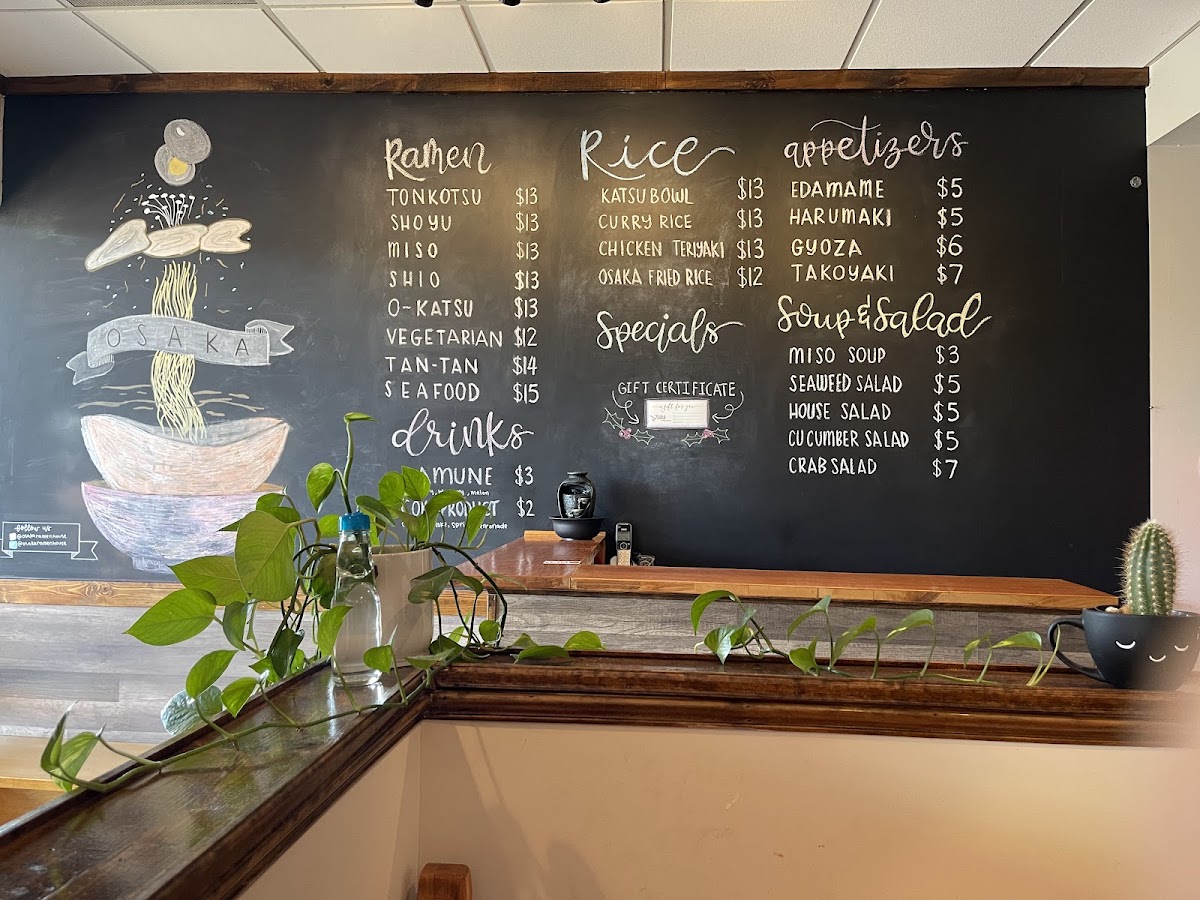 OSAKA
follow us
Ramen
TONKOTSU $13
SHOYU $13
MISO $13
SHIO $13
O-KATSU $13
VEGETARIAN $12
TAN-TAN $14
SEAFOOD $15
drinks
AMUNE $3
melon
$2
Rice
KATSU BOWL $13
CURRY RICE $13
CHICKEN TERIYAKI $13
OSAKA FRIED RICE $12
Specials
GIFT CERTIFICATE
appetizers
EDAMAME $5
HARUMAKI $5
GYOZA $6
TAKOYAKI $7
Soup & Salad
MISO SOUP $3
SEAWEED SALAD $5
HOUSE SALAD $5
CUCUMBER SALAD $5
CRAB SALAD $7